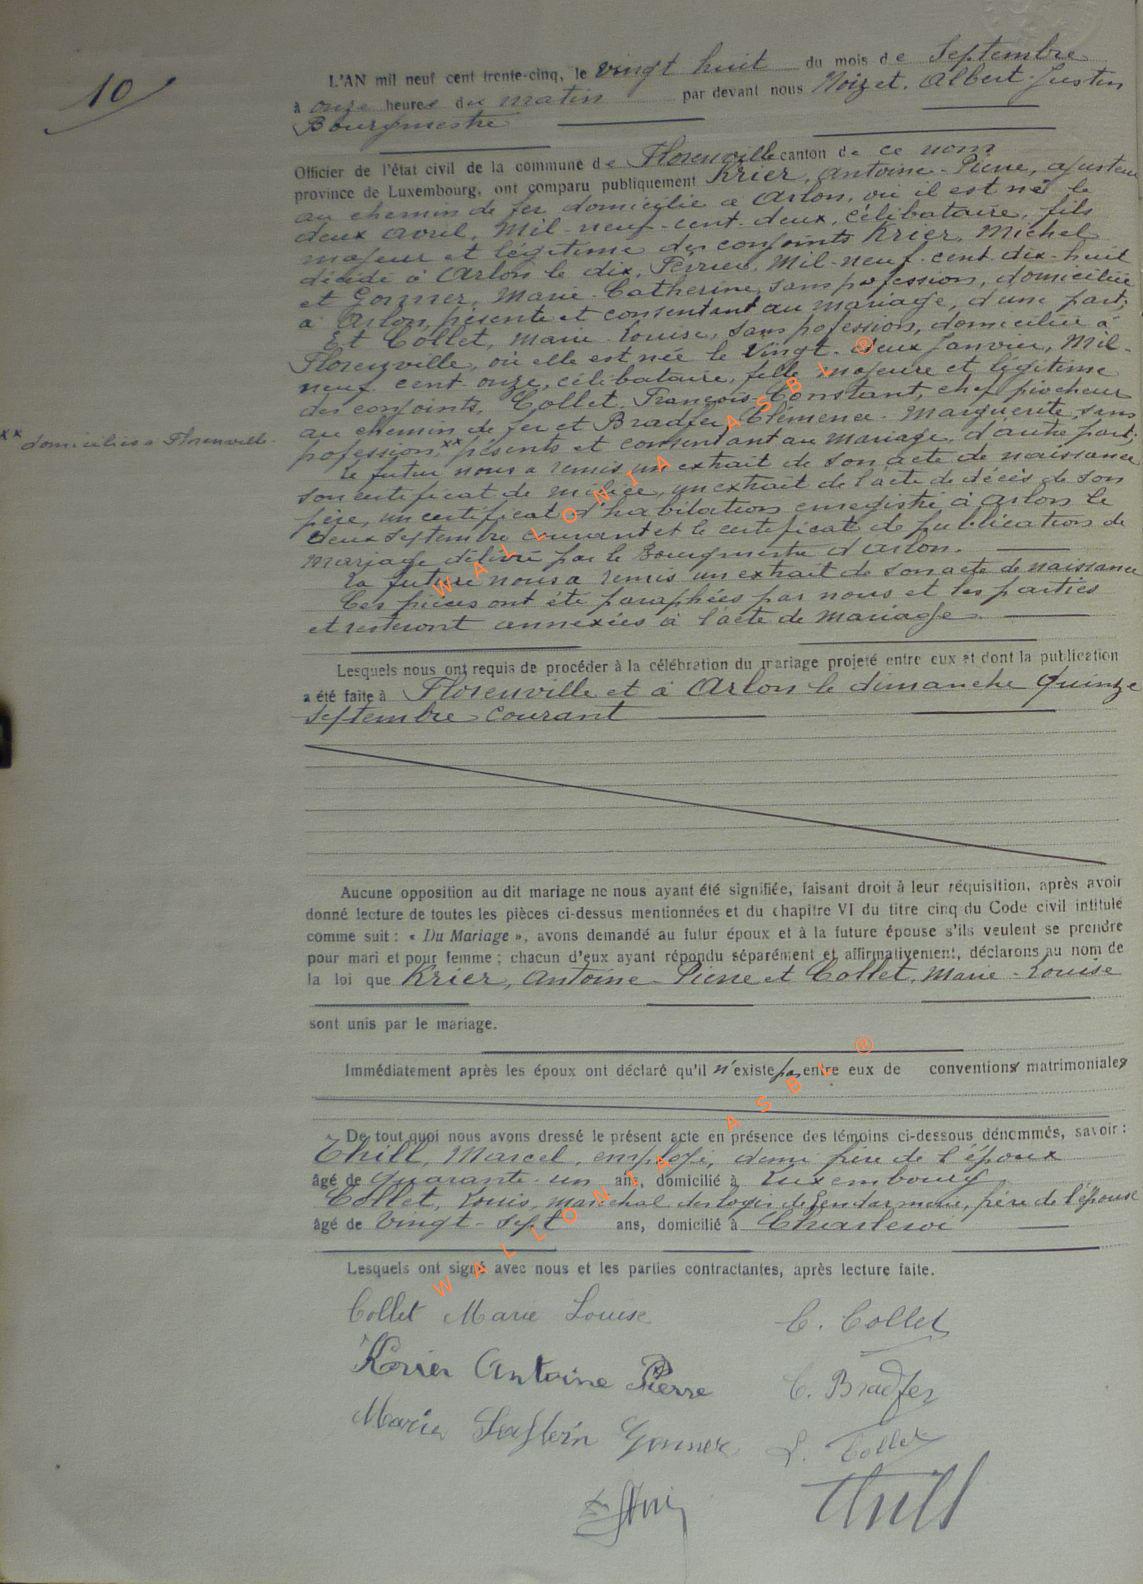 10
L'AN mil neuf cent trente-cinq, le vingt huit du mois de Septembre
à onze heures du matin par devant nous Noizet, Albert-Justin
Bourgmestre
Officier de l'état civil de la commune de Florenville canton de ce nom
province de Luxembourg, ont comparu publiquement Krier, Antoine-Pierre, ajusteur
au chemin de fer, domicilié à Arlon, où il est né le
deux avril, Mil-neuf-cent-deux, célibataire, fils
majeur et légitime des conjoints Krier, Michel
décédé à Arlon le dix, Février, Mil-neuf-cent-dix-huit
et Gonner, Marie-Catherine, sans profession, domiciliée
à Arlon, présente et consentant au mariage, d'une part;
Et Collet, Marie-Louise, sans profession, domiciliée à
Florenville, où elle est née le Vingt-deux Janvier, Mil-
neuf cent onze, célibataire, fille majeure et légitime
des conjoints, Collet, François-Constant, chef piocheur
au chemin de fer et Bradfer, Clémence-Marguerite, sans
xx domiciliés à Florenville.
profession, xx présents et consentant au mariage, d'autre part;
Le futur nous a remis un extrait de son acte de naissance
son certificat de milice, un extrait de l'acte de décès de son
père, un certificat d'habitation enregistré à Arlon le
deux septembre courant et le certificat de publications de
mariage délivré par le Bourgmestre d'Arlon.
La future nous a remis un extrait de son acte de naissance
Ces pièces ont été paraphées par nous et les parties
et resteront annexées à l'acte de mariage.
Lesquels nous ont requis de procéder à la célébration du mariage projeté entre eux et dont la publication
a été faite à Florenville et à Arlon le dimanche quinze
septembre courant
Aucune opposition au dit mariage ne nous ayant été signifiée, faisant droit à leur réquisition, après avoir
donné lecture de toutes les pièces ci-dessus mentionnées et du chapitre VI du titre cinq du Code civil intitulé
comme suit : « Du Mariage », avons demandé au futur époux et à la future épouse s'ils veulent se prendre
pour mari et pour femme ; chacun d'eux ayant répondu séparément et affirmativement, déclarons au nom de
la loi que Krier, Antoine-Pierre et Collet, Marie-Louise
sont unis par le mariage.
Immédiatement après les époux ont déclaré qu'il n'existe pas entre eux de conventions matrimoniales
De tout quoi nous avons dressé le présent acte en présence des témoins ci-dessous dénommés, savoir :
Thill, Marcel, employé, demi frère de l'époux
âgé de quarante-un ans, domicilié à Luxembourg
Collet, Louis, maréchal des logis de Gendarmerie, frère de l'épouse
âgé de vingt-sept ans, domicilié à Charleroi
Lesquels ont signé avec nous et les parties contractantes, après lecture faite.
Collet Marie Louise C. Collet
Krier Antoine Pierre C. Bradfer
Marie Gonner L. Collet
Thill
WALLONIA ASBL ®
WALLONIA ASBL ®